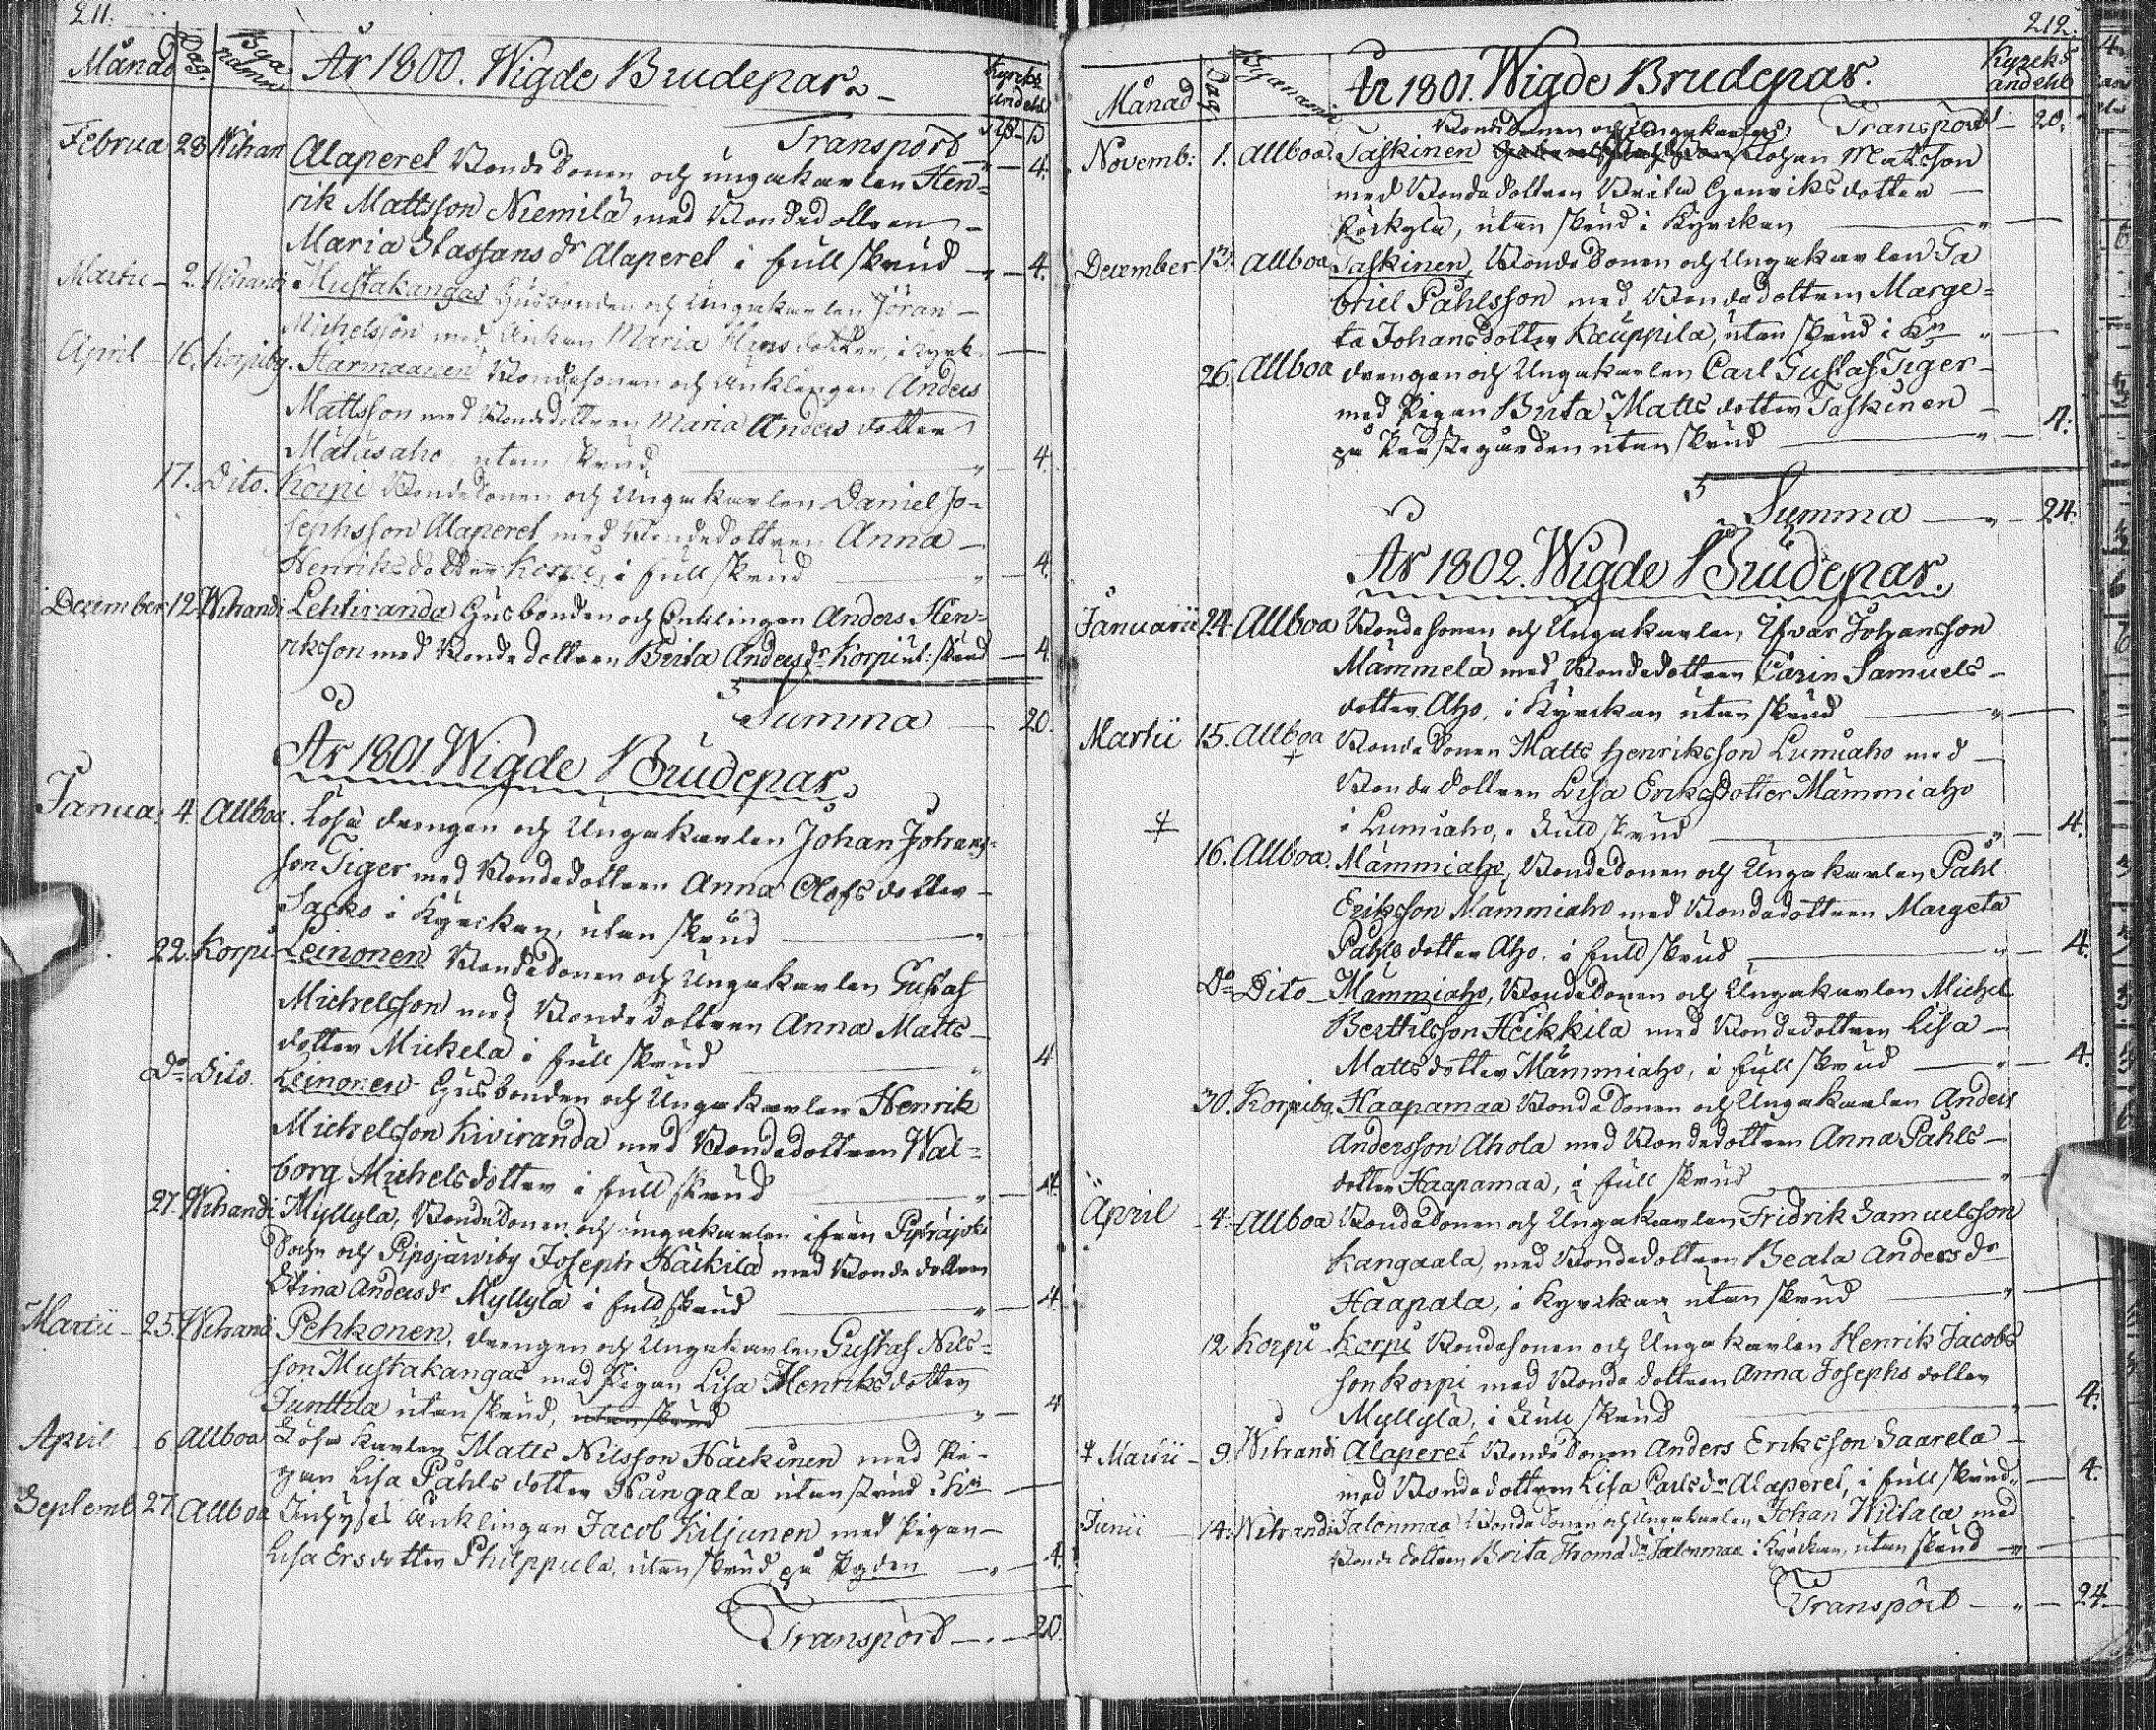 211.
Månad Dag. Bya namn År 1800. Wigde Brudepar. Kyrks andehl
Transport
Februa 28 Wihan Alaperet Bondesonen och ungakarlen Hen= 4.
rik Mattsson Niemilä med Bondedottren
Maria Stassans dr Alaperet i full skrud 4.
Martii 2. Wihandi Mustakangas Husbonden och Ungakarlen Jöran
Michelsson med Änkan Maria Hinsdotter, i kyrk.
April 16. Korpiby. Harmaanen Bondesonen och Änklingen Anders
Mattsson med Bondedottren Maria Anders dotter
Matusaho, utan skrud 4.
17. Dito. Korpi Bondesonen och Ungakarlen Daniel Jo=
sephsson Alaperet med Bondedottren Anna
Henriksdotter Korpi, i full skrud 4.
December 12. Wihandi Lehtiranda Husbonden och Enklingen Anders Hen=
riksson med Bondedottren Brita Anders dr Korpi ut: skrud 4.
Summa 20.
År 1801 Wigde Brudepar.
Janua: 4. Allboa. Lösa drengen och Ungakarlen Johan Johans=
son Tiger med Bondedottren Anna Olofsdotter
Sacko i Kyrckan, utan skrud
22. Korpi Leinonen Bondesonen och Ungakarlen Gustaf
Michelsson med Bondedottren Anna Matts
dotter Mickelä i full skrud 4
Do Dito. Leinonen Husbonden och Ungakarlen Henrik
Michelsson Kiviranda med Bondedottren Wal=
borg Michelsdotter i full skrud 4.
27. Wihandi Myllylä, Bondesonen och ungakarlen ifrån
Sochn och Pipsjärwiby Joseph Häikilä med Bondedottren
Stina Anders dr Myllylä i full skrud 4.
Martii 25. Wihandi Pehkonen, drengen och Ungakarlen Gustaf Nils=
son Mustakangas med Pigan Lisa Henriksdotter
Junttila utan skrud, utan skrud 4
April 6. Allboa Lösa karlen Matts Nilsson Härkinen med Pi=
gan Lisa Påhlsdotter Kangala utan skrud i Kn
Septemb 27. Allboa Inhyses Änklingen Jacob Kiljunen med Pigan
Lisa Ersdotter Philppula, utan skrud, på Pgden 4.
Transport 20.
212.
Månad Dag. Byanamn År 1801. Wigde Brudepar. Kyrcks andehl
Transport 20.
Bondesonen och Ungakarlen
Novemb: 1. Allboa. Taskinen Johan Matsson
med Bondedottren Brita Henriksdotter
Räckylä, utan skrud i Kyrckan
December 13. Allboa Taskinen, Bondesonen och Ungakarlen Ga
briel Påhlsson med Bondedottren Marge=
ta Johansdotter Kauppila, utan skrud i Kn
26. Allboa drengen och Ungakarlen Carl Gustaf Tiger
med Pigan Brita Mattsdotter Taskinen
på Prästegården utan skrud 4.
Summa 24.
År 1802. Wigde Brudepar.
Januarii 24. Allboa Bondesonen och Ungakarlen, Ifvar Johansson
Mämmelä med Bondedottren Carin Samuels
dotter Aho, i Kyrckan utan skrud
Martii 15. Allboa Bondesonen Matts Henriksson Lumiaho med
Bondedottren Lisa Eriksdotter Mämmiaho
i Lumiaho, i full skrud 4.
16. Allboa. Mämmiaho, Bondesonen och Ungakarlen Påhl
Eriksson Mämmiaho med Bondedottren Margeta
Påhlsdotter Aho, i full skrud 4.
Do Dito Mämmiaho, Bondesonen och Ungakarlen Michel
Berttilsson Heikkilä med Bondedottren Lisa
Mattsdotter Mämmiaho, i full skrud 4.
30. Korpiby. Haapamaa Bondesonen och Ungakarlen Anders
Andersson Ahola med Bondedottren Anna Påhls
dotter Haapamaa, i full skrud
April 4. Allboa Bondesonen och Ungakarlen Fridrik Samuelsson
Kangaala, med Bondedottren Beata Anders dr
Haapala, i Kyrckan utan skrud
12 Korpi Korpi Bondesonen och Ungakarlen Henrik Jacobs
son Korpi med Bondedottren Anna Josephsdotter
Myllylä, i full skrud 4.
Martii 9. Wihandi Alaperet Bondesonen Anders Eriksson Saarela
med Bondedottren Lisa Carlsdr Alaperet, i full skrud 4.
Junii 14. Wihandi Jalonmaa Bondesonen och Ungakarlen Johan Wirtala med
Bondedottren Brita Thoma dr Jalonmaa i Kyrckan, utan skrud
Transport 24